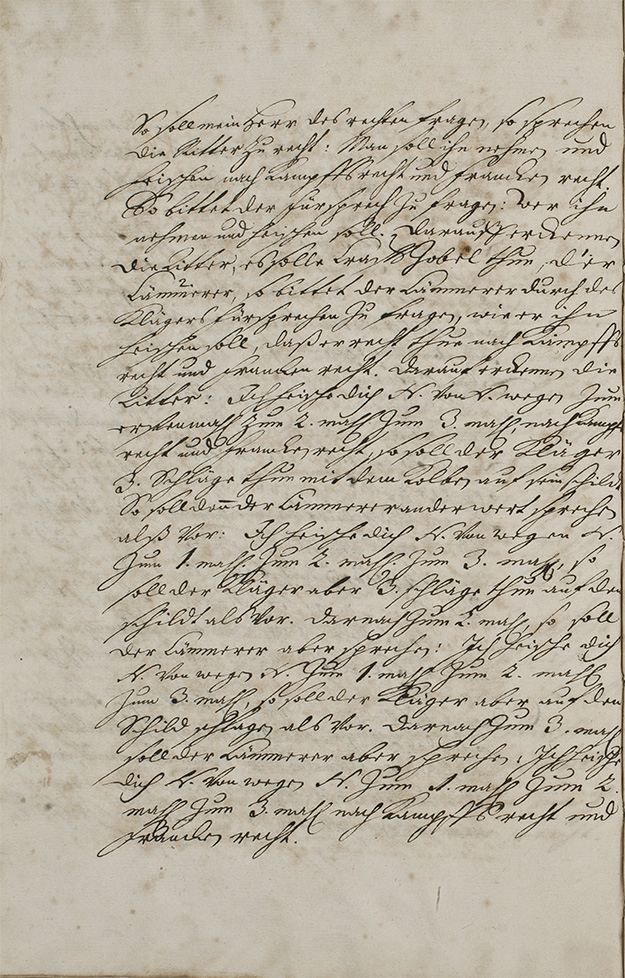 So soll mein Herr des rechten fragen, so sprechen
die Ritter zu recht: Man soll ihn nehmen und
heischen nach Kampffs recht und francken recht
So bittet der fürsprech zu fragen: wer ihn
nehmen und heischen soll. darauff erkennen
die Ritter, es solle Zobel thun, der
Cämmerer, so bittet der Cämmerer durch des
Klägers fürsprechen zu fragen, wie er ihn
heischen soll, daß er recht thue nach Kampffs
recht und francken recht. darauf erkennen die
Ritter: Ich heische dich N. von N. wegen zum
erstenmahl zum 2. mahl zum 3. mahl nach Kampffs
recht und francken recht, so soll der Kläger
3. Schläge thun mit dem Kolben auf sein schildt
So soll dann der Cämmerer anderwert sprechen
alß vor: Ich heische dich N. von wegen N.
zum 1. mahl. zum 2. mahl. zum 3. mahl, so
soll der Kläger aber 3. schläge thun auf den
schildt als vor. darnach zum 2. mahl, so soll
der Cämmerer aber sprechen: Ich heische dich
N. von wegen N. zum 1. mahl zum 2. mahl
zum 3. mahl, so soll der Kläger aber auf den
Schild schlagen als vor. darnach zum 3. mahl
soll der Cämmerer aber sprechen: Ich heische
dich N. von wegen N. zum 1. mahl zum 2.
mahl zum 3. mahl nach Kampffs recht und
francken recht.